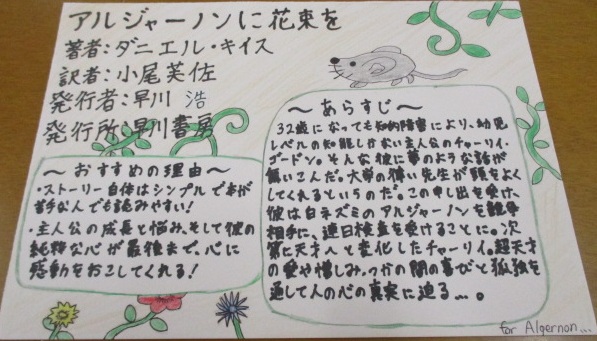 アルジャーノンに花束を
著者：ダニエル・キイス
訳者：小尾芙佐
発行者：早川 浩
発行所：早川書房
〜おすすめの理由〜
・ストーリー自体はシンプルで本が
苦手な人でも読みやすい！
・主人公の成長と悩み、そして彼の
純粋な心が最後まで、心に
感動をおこしてくれる！
〜あらすじ〜
32歳になっても知的障害により、幼児
レベルの知能しかない主人公のチャーリイ・
ゴードン。そんな彼に夢のような話が
舞いこんだ。大学の偉い先生が頭をよく
してくれるというのだ。この申し出を受け、
彼は白ネズミのアルジャーノンを競争
相手に、連日検査を受けることに。次
第に天才へと変化したチャーリイ。超天才
の愛や憎しみ、つかの間の喜びと孤独を
通して人の心の真実に迫る…。
for Algernon...